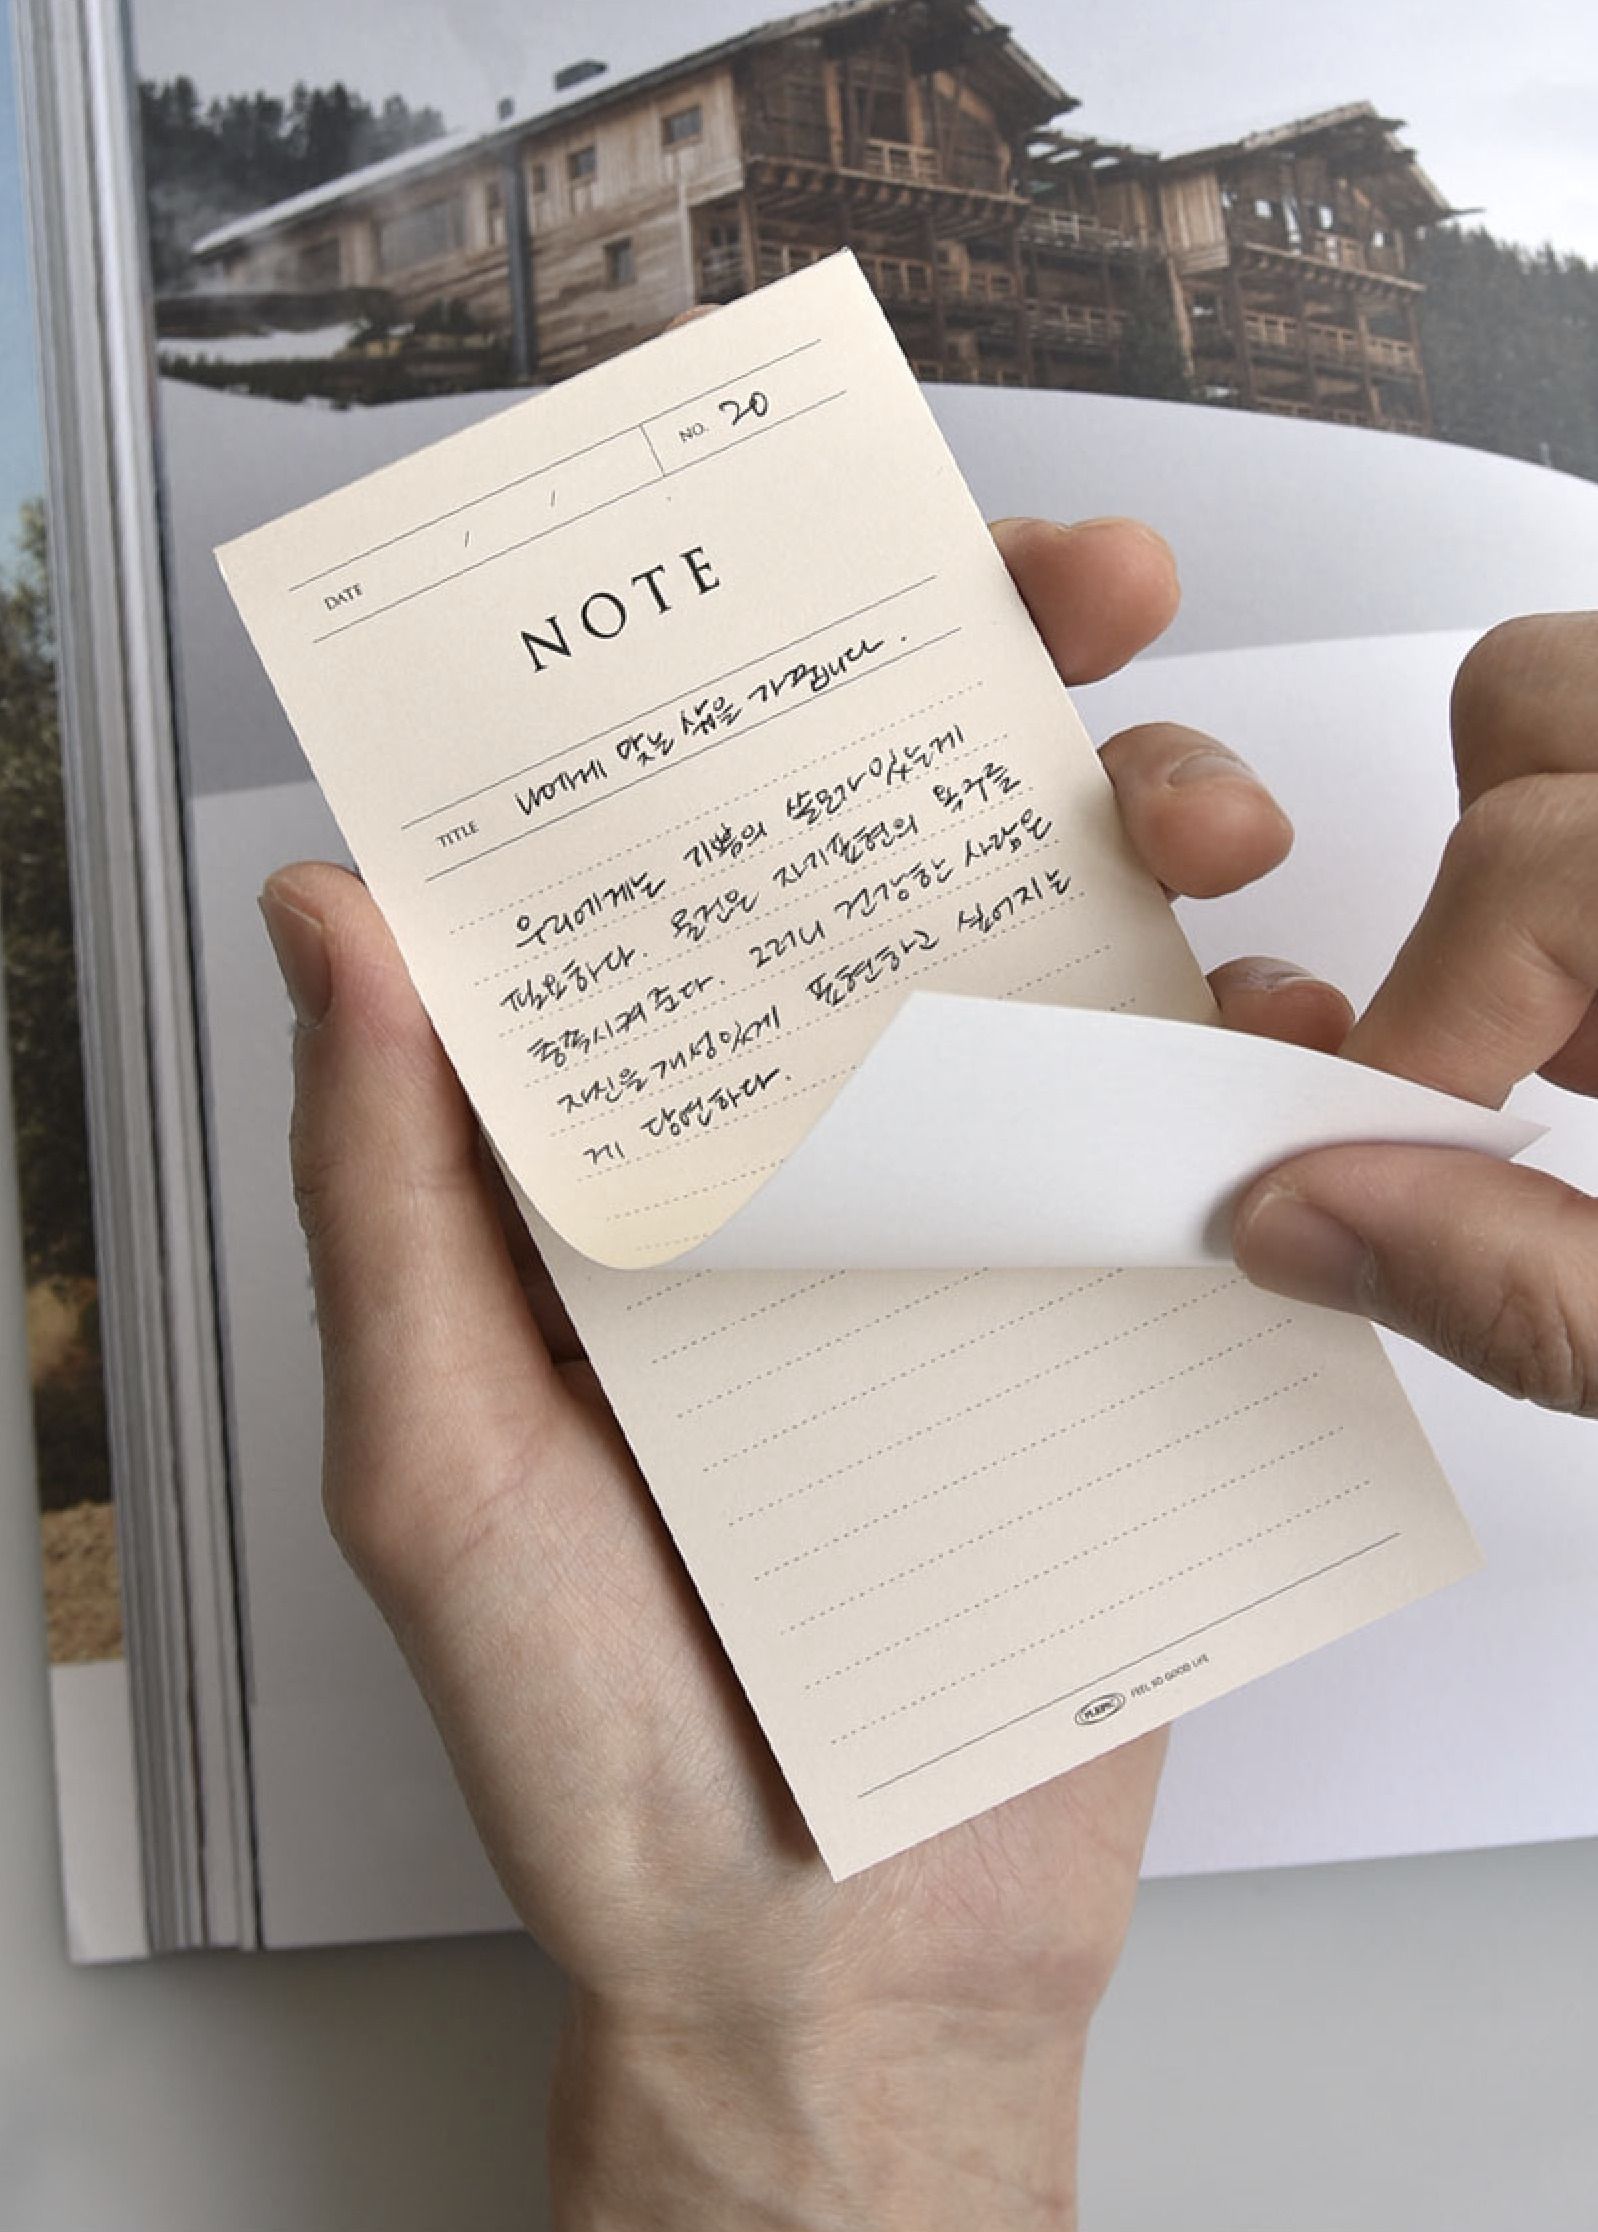 NO. 20
DATE / /
NOTE
TITLE 나에게 맞는 삶을 가꿉니다.
우리에게는 기쁨의 쓸모가 있는게
필요하다. 물건은 자기표현의 욕구를
충족시켜 준다. 그러니 건강한 사람은
자신을 개성있게 표현하고 싶어지는
게 당연하다.
FEEL SO GOOD LIFE